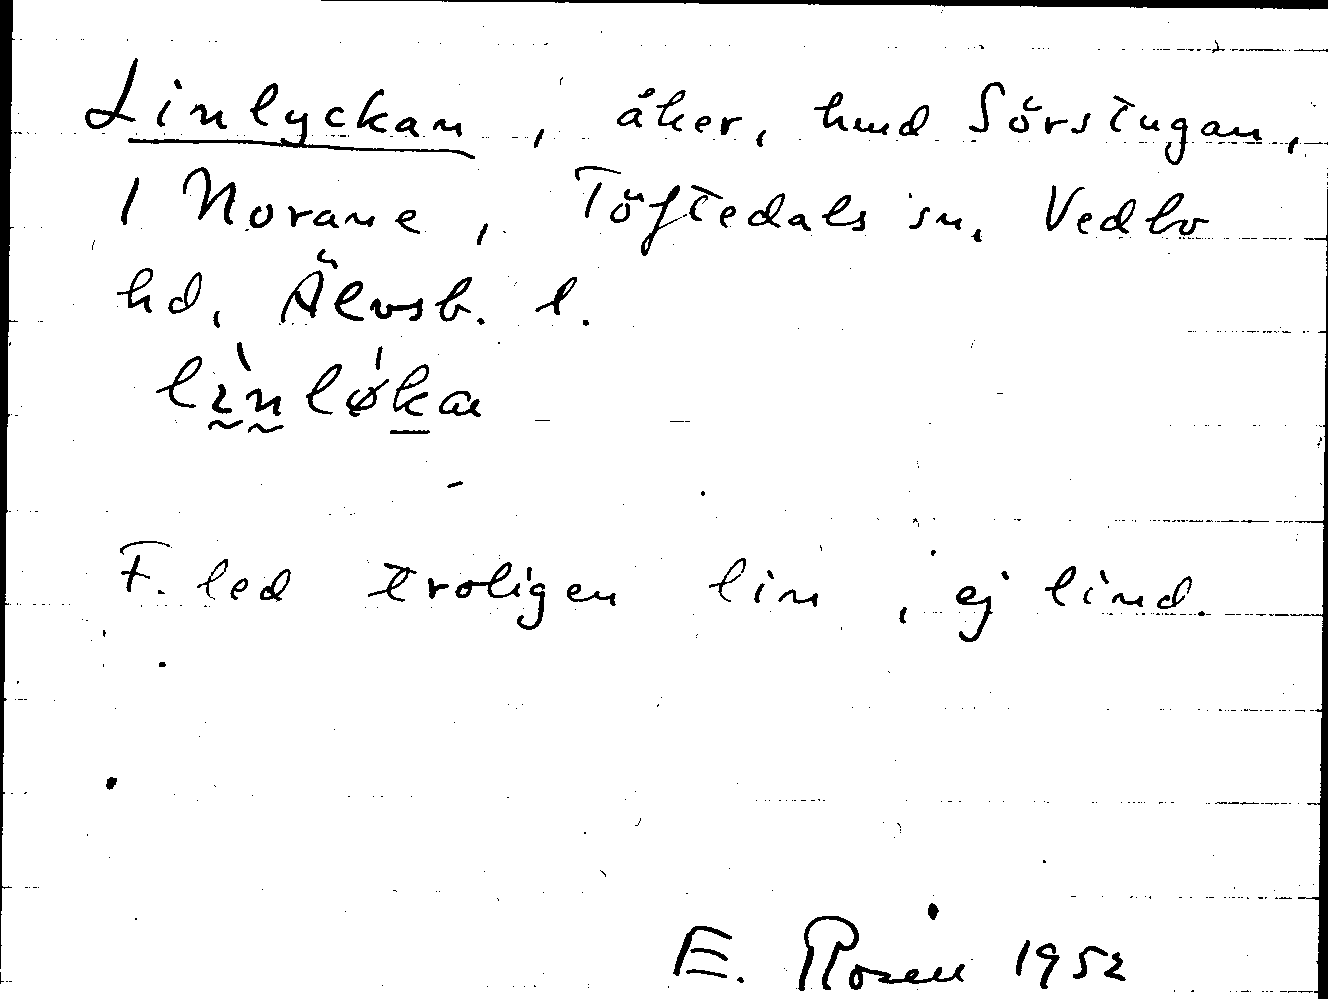 Linlyckan, åker, hmd Sörstugan,
1 Norane, Töftedals sn, Vedbo
hd, Älvsb. l.
lìnløka
F. led troligen lin, ej lind.
E. Rosén 1952